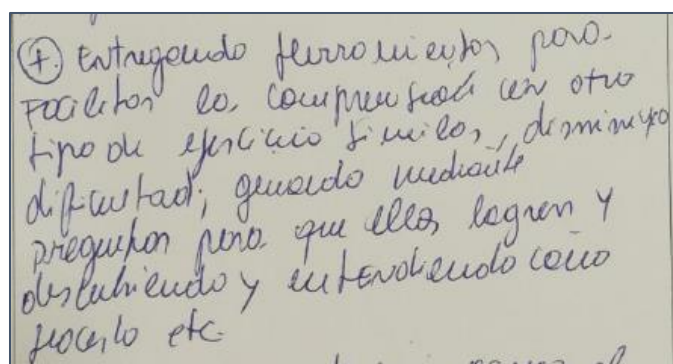 (7.) Entregando herramientas para
facilitar la comprensión con otro
tipo de ejercicio similar, disminuyo
dificultad; guiando mediante
preguntas para que ellos logren y
descubriendo y entendiendo como
hacerlo etc.